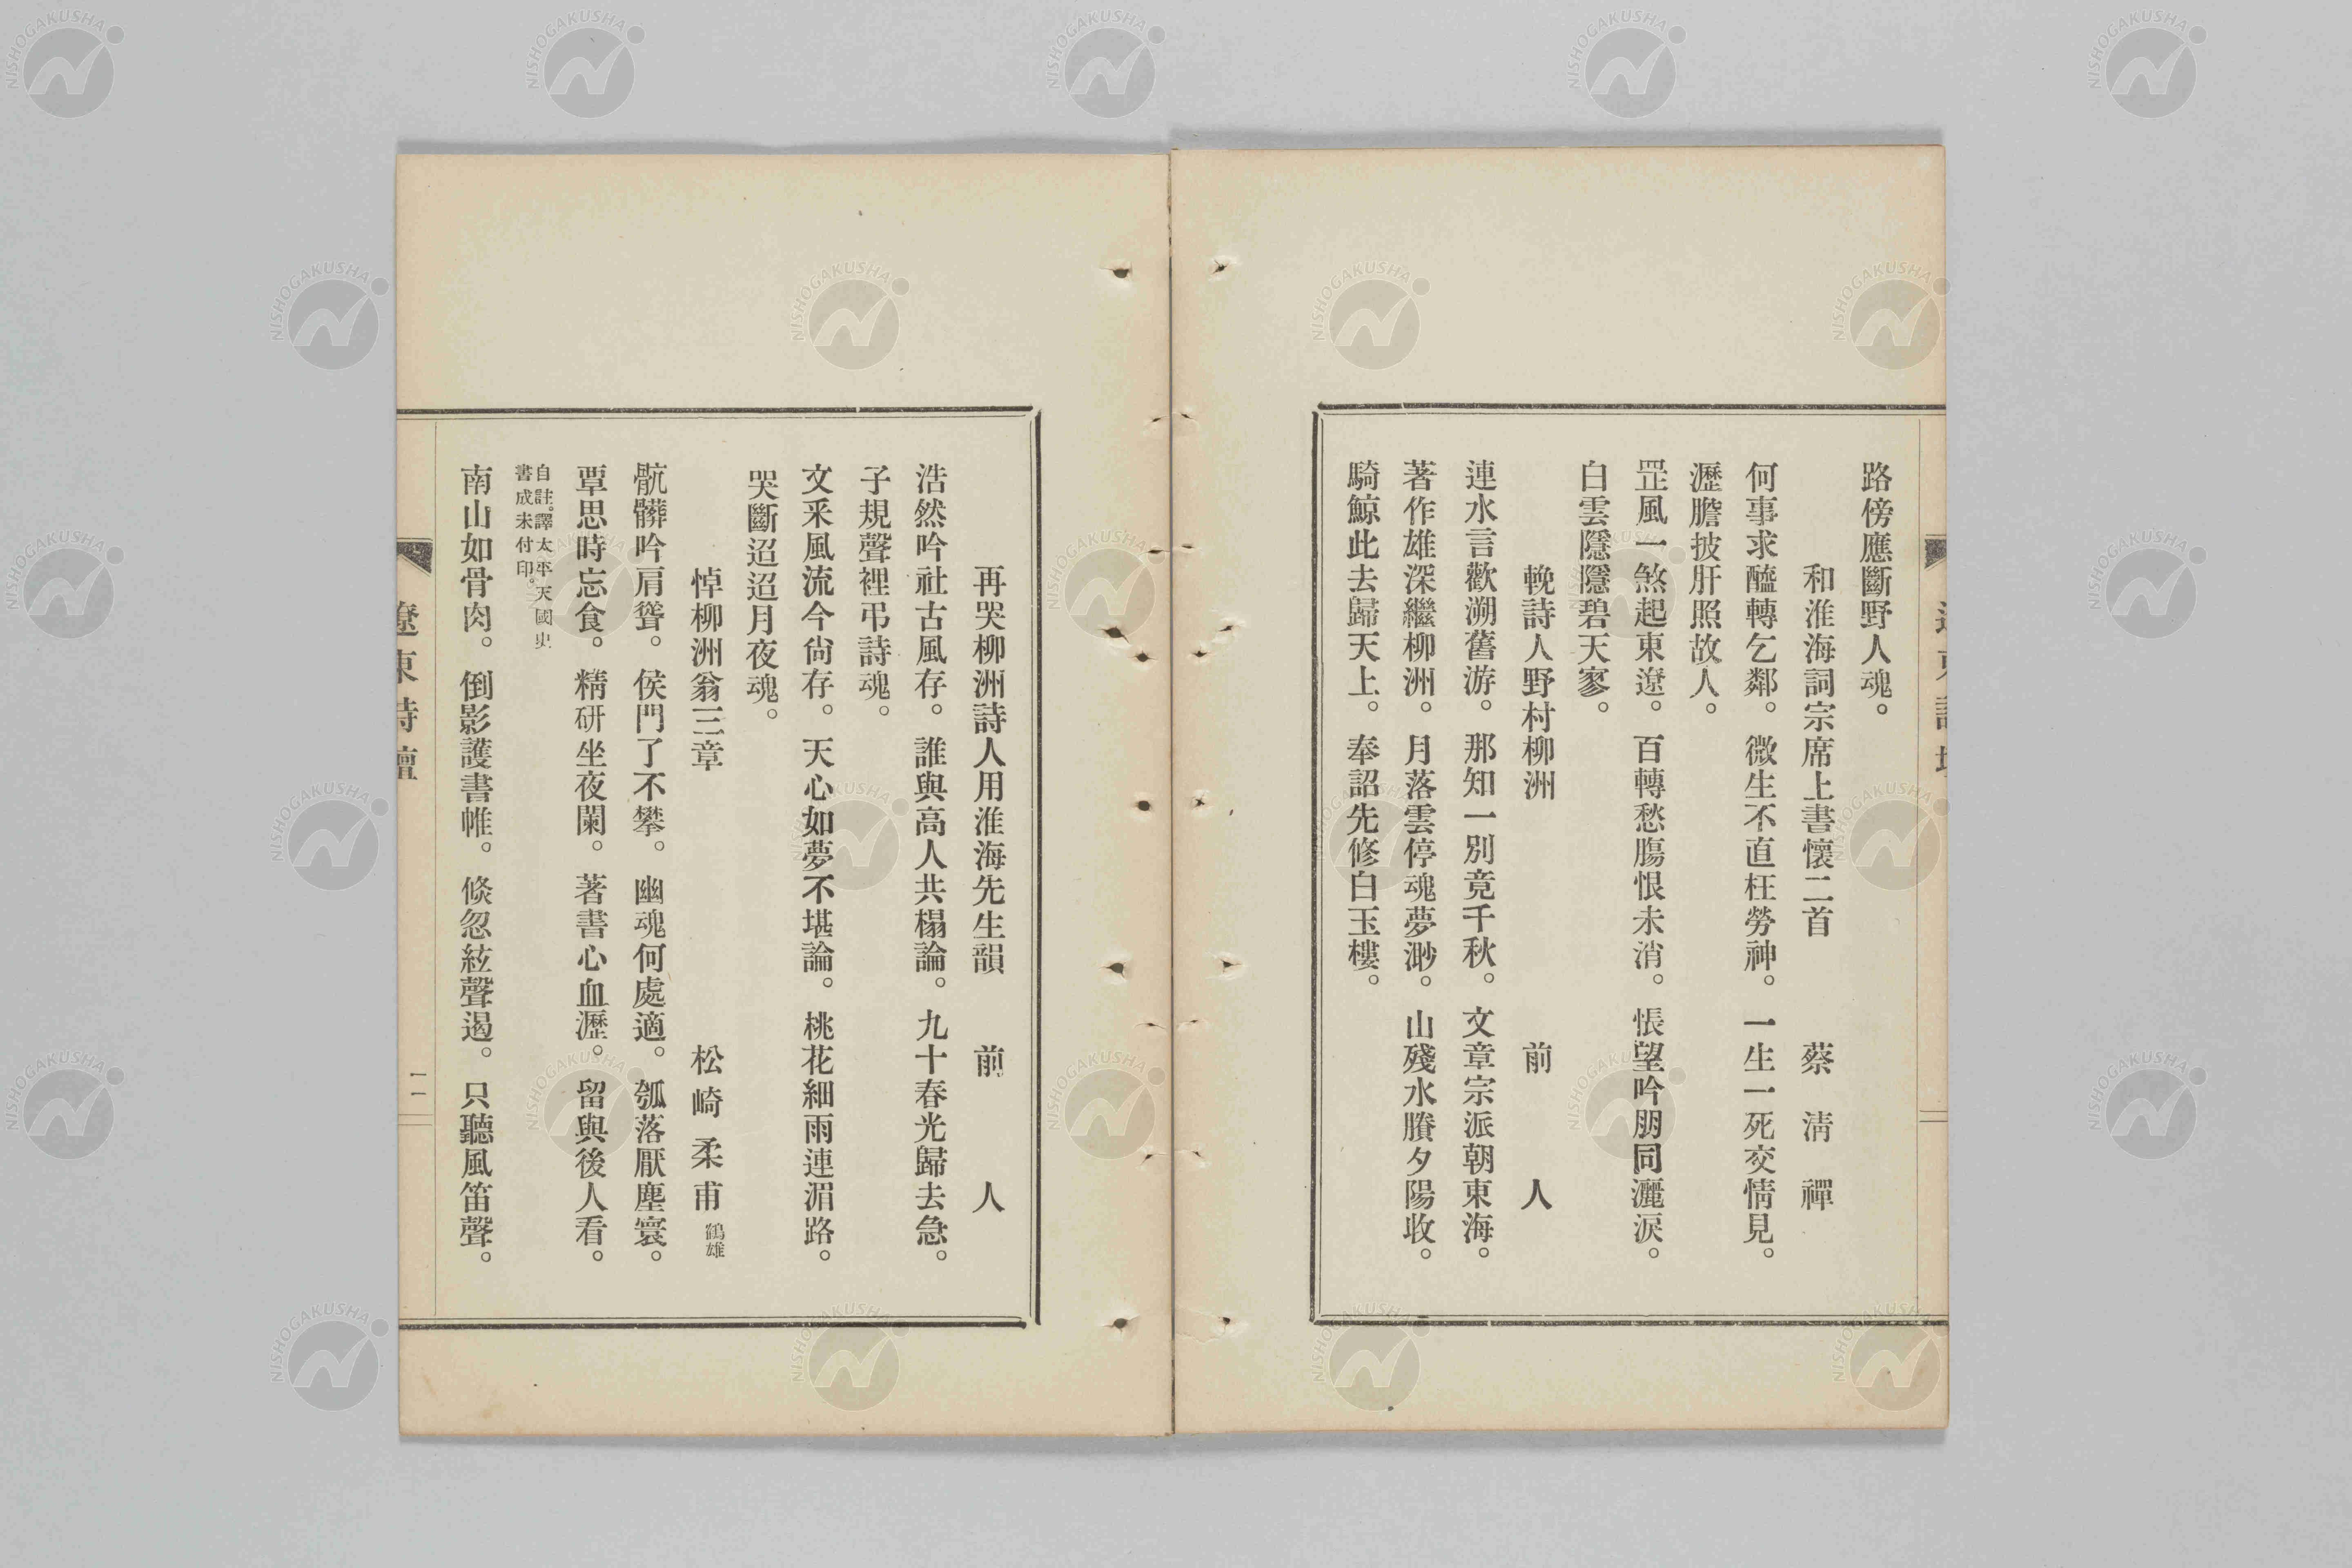 路傍應斷野人魂。
和淮海詞宗席上書懷二首　蔡清禪
何事求醯轉乞鄰。微生不直枉勞神。一生一死交情見。
瀝膽披肝照故人。
罡風一煞起東遼。百轉愁膓恨未消。悵望吟朋同灑淚。
白雲隱隱碧天寥。
輓詩人野村柳洲　前人
連水言歡溯舊游。那知一別竟千秋。文章宗派朝東海。
著作雄深繼柳洲。月落雲停魂夢渺。山殘水賸夕陽收。
騎鯨此去歸天上。奉詔先修白玉樓。
再哭柳洲詩人用淮海先生韻　前人
浩然吟社古風存。誰與高人共榻論。九十春光歸去急。
子規聲裡弔詩魂。
文采風流今尙存。天心如夢不堪論。桃花細雨連湄路。
哭斷迢迢月夜魂。
悼柳洲翁三章　松崎柔甫 鶴雄
骯髒吟肩聳。侯門了不攀。幽魂何處適。瓠落厭塵寰。
覃思時忘食。精硏坐夜闌。著書心血瀝。留與後人看。
自註。譯太平天國史
書成未付印。
南山如骨肉。倒影護書帷。倏忽絃聲遏。只聽風笛聲。
遼東詩壇
一一
NISHOGAKUSHA